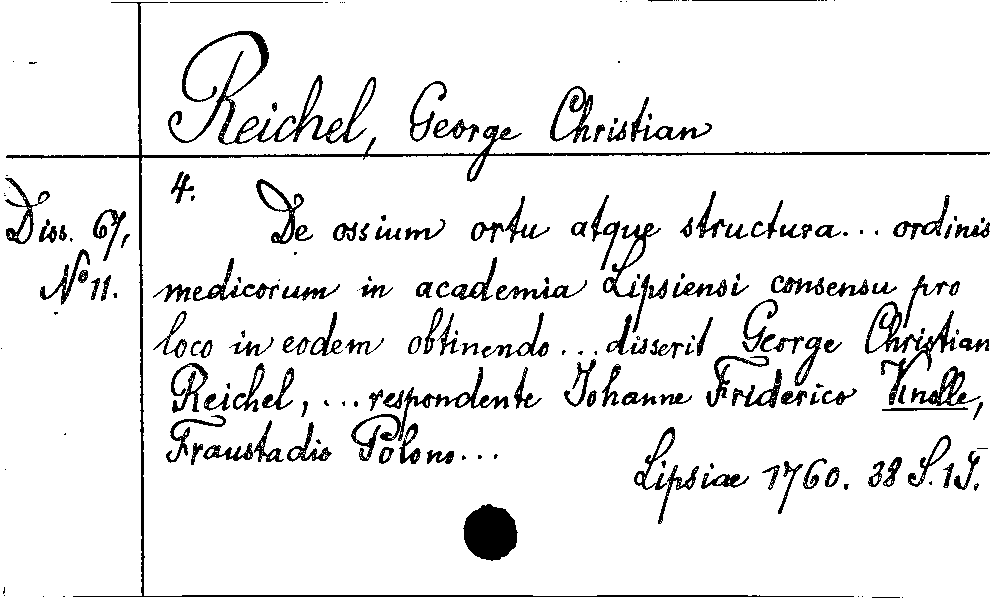 Reichel, George Christian
4.
Diss. 67,
No 11.
De ossium ortu atque structura... ordinis
medicorum in academia Lipsiensi consensu pro
loco in eodem obtinendo... disserit George Christian
Reichel, ... respondente Johanne Friderico Knolle,
Fraustadio Polono...
Lipsiae 1760. 38 S. 1 T.